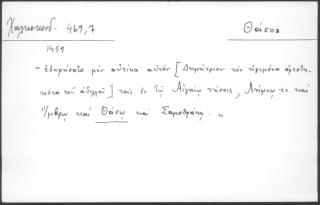 Χαλκοκονδ. 469,7
Θάσος
1459
" ἐδωρήσατο μὲν αὐτίκα αὐτὸν [Δημήτριον τὸν ἡγεμόνα
τοῦ ἀδελφοῦ] ταῖς ἐν τῷ Αἰγαίῳ νήσοις, Λήμνῳ τε καὶ
Ἴμβρῳ καὶ Θάσῳ καὶ Σαμοθράκῃ. "